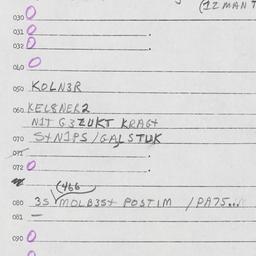 (12 MAN T
030
031 .
032 .
040
050 KOLN3R
060 KELSNER2
NIT G3ZUKT KRAGt
070 StNIPS/GALSTUK
071 .
072 .
(466
080 3S MOLB3St POSTIM /PA75...
081 –
090